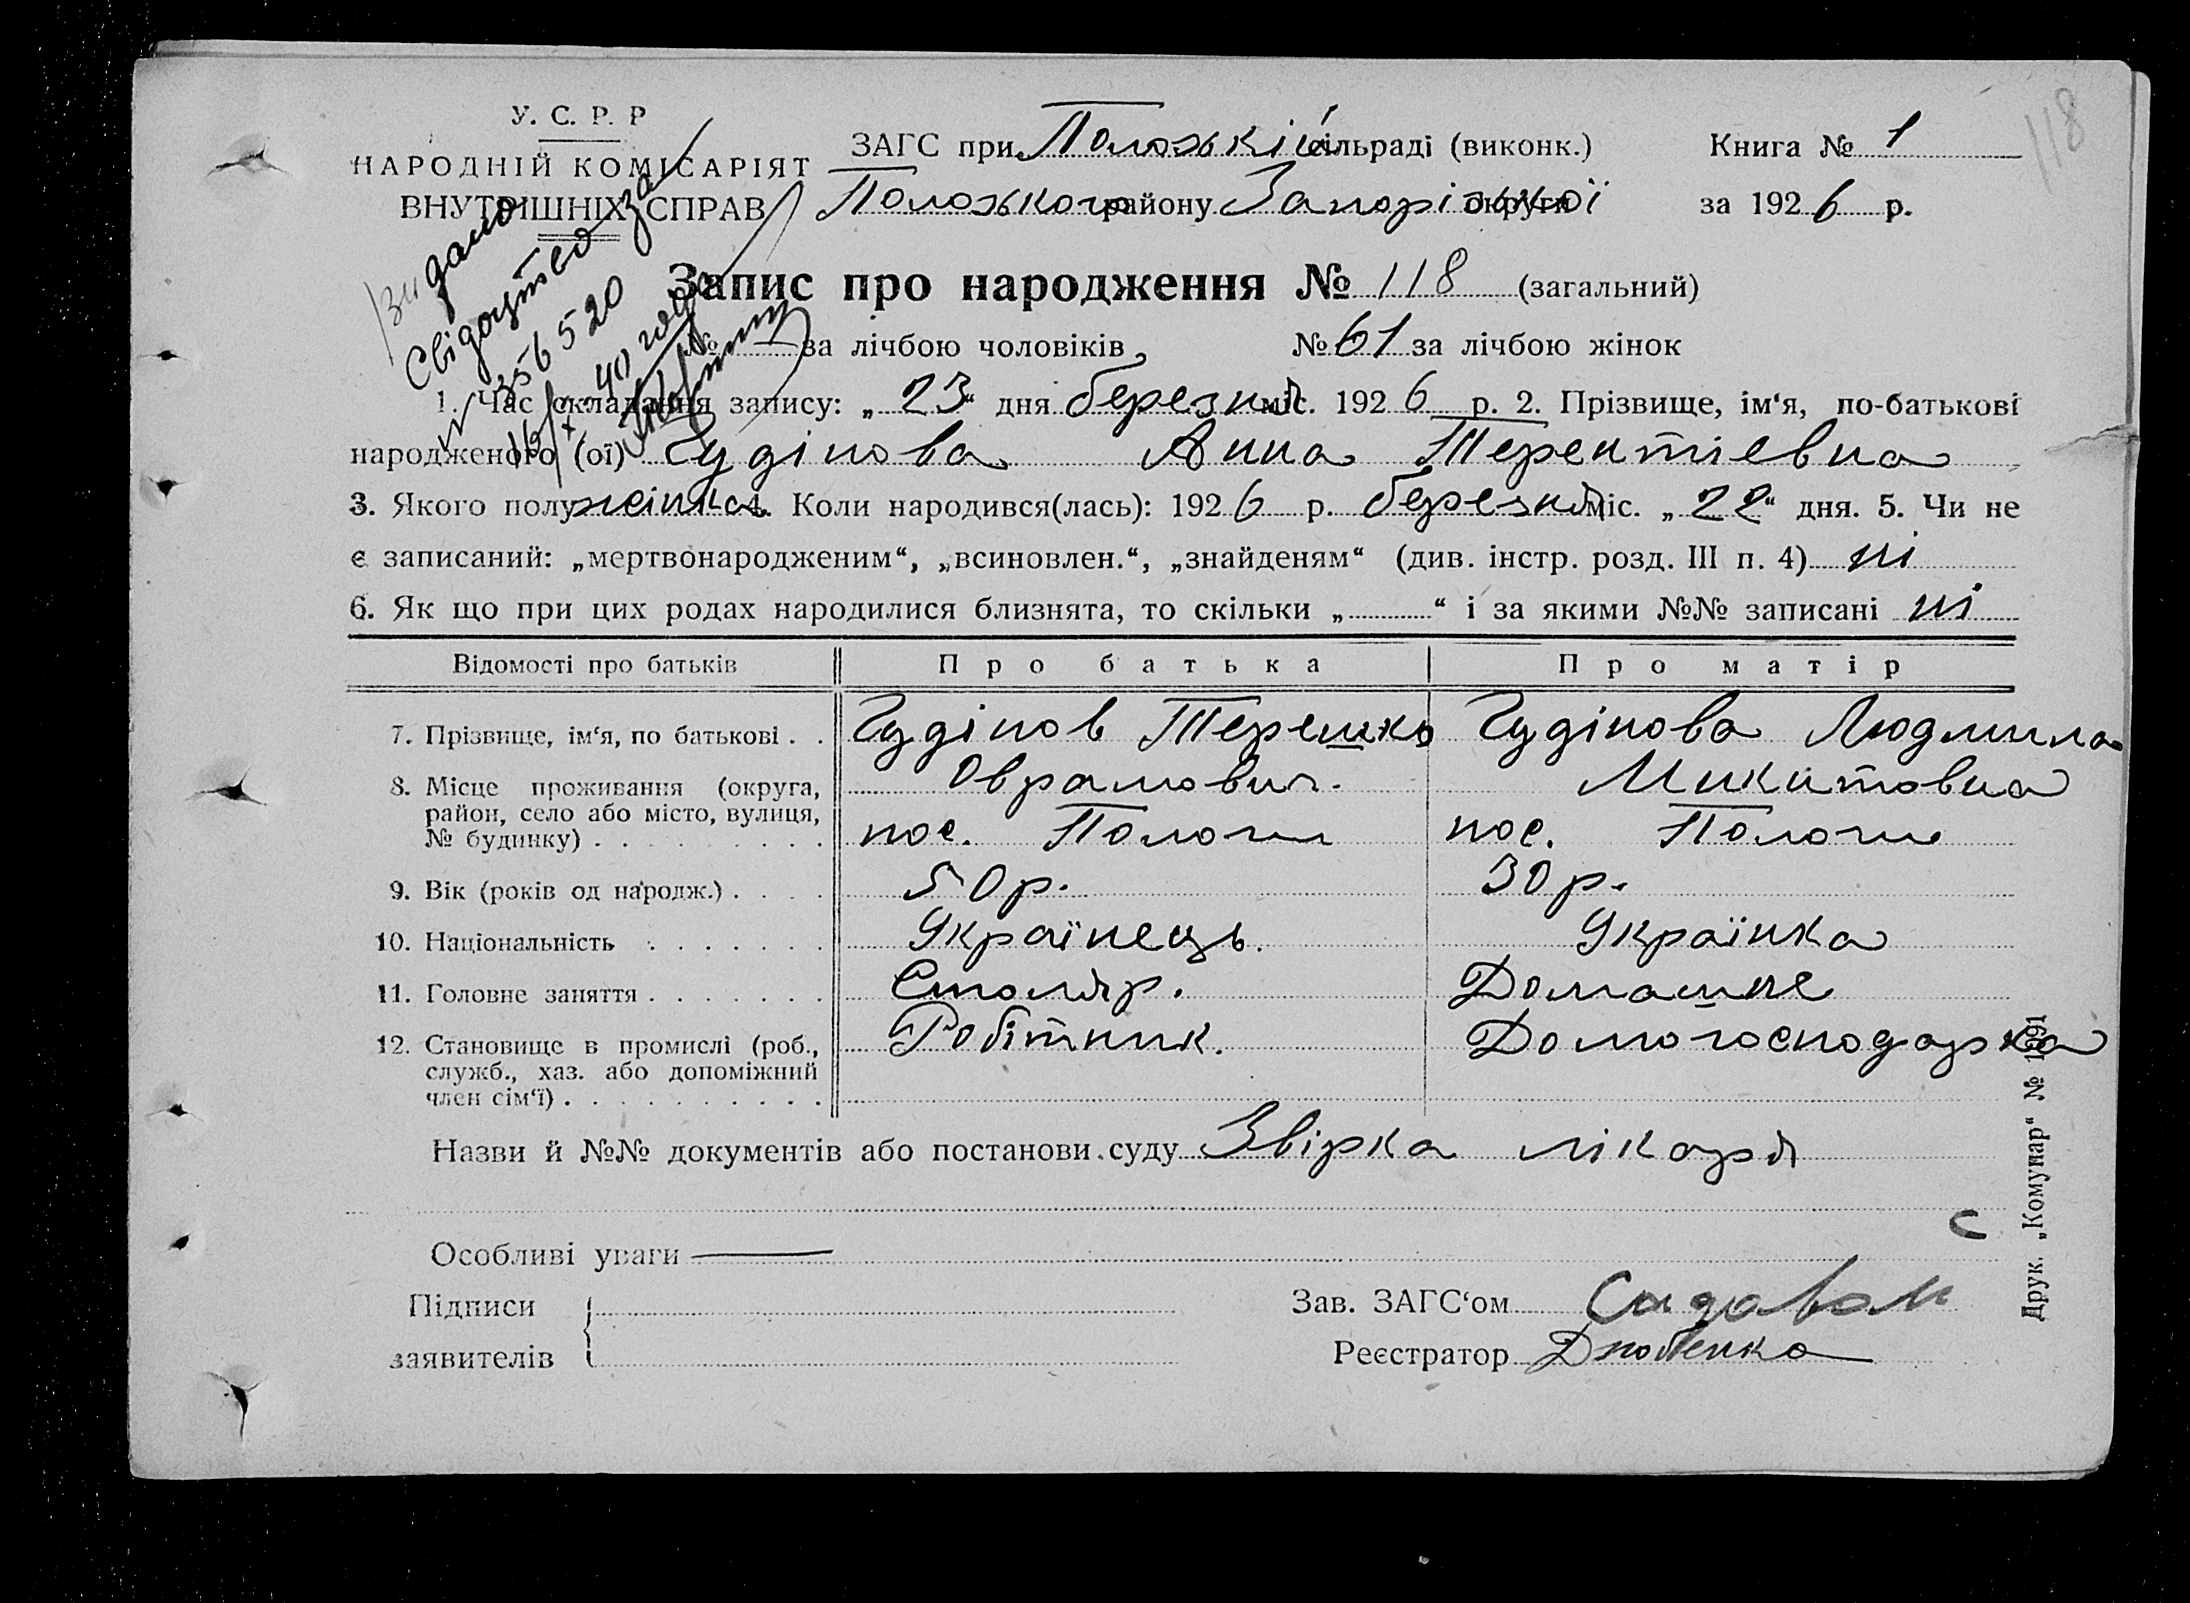 118
У. С. Р. Р
НАРОДНІЙ КОМІСАРІЯТ
ВНУТРІШНІХ СПРАВ
ЗАГС при Положькій сільраді (виконк.)
Книга № 1
Положького району Запорізької округи
за 1926 р.
Видано
Свідоцтво за
№ 356520
16/X - 40 года
Запис про народження № 118 (загальний)
№ — за лічбою чоловіків, № 61 за лічбою жінок
1. Час складання запису: „23“ дня березня міс. 1926 р. 2. Прізвище, ім‘я, по-батькові
народженого (ої) Чудінова Анна Терентіевна
3. Якого полу жінка 4. Коли народився(лась): 1926 р. березня міс. „22“ дня. 5. Чи не
є записаний: „мертвонародженим“, „всиновлен.“, „знайденям“ (див. інстр. розд. III п. 4) ні
6. Як що при цих родах народилися близнята, то скільки „ “ і за якими №№ записані ні
Відомості про батьків Про батька Про матір
7. Прізвище, ім‘я, по батькові . . Чудінов Терешко Чудінова Людмила
Оврамович. Микитовна
8. Місце проживання (округа,
район, село або місто, вулиця,
№ будинку) . . . . . . . . . пос. Пологи пос. Пологи
9. Вік (років од народж.) . . . . 50 р. 30 р.
10. Національність . . . . . . . Українець. Українка
11. Головне заняття . . . . . . . Столяр. Домашне
12. Становище в промислі (роб.,
служб., хаз. або допоміжний
член сім‘ї) . . . . . . . . . . Робітник. Домогосподарка
Назви й №№ документів або постанови суду Звірка лікаря
Особливі уваги —
Підписи
заявителів
Зав. ЗАГС‘ом
Реєстратор
Друк. „Комунар“ № 1391